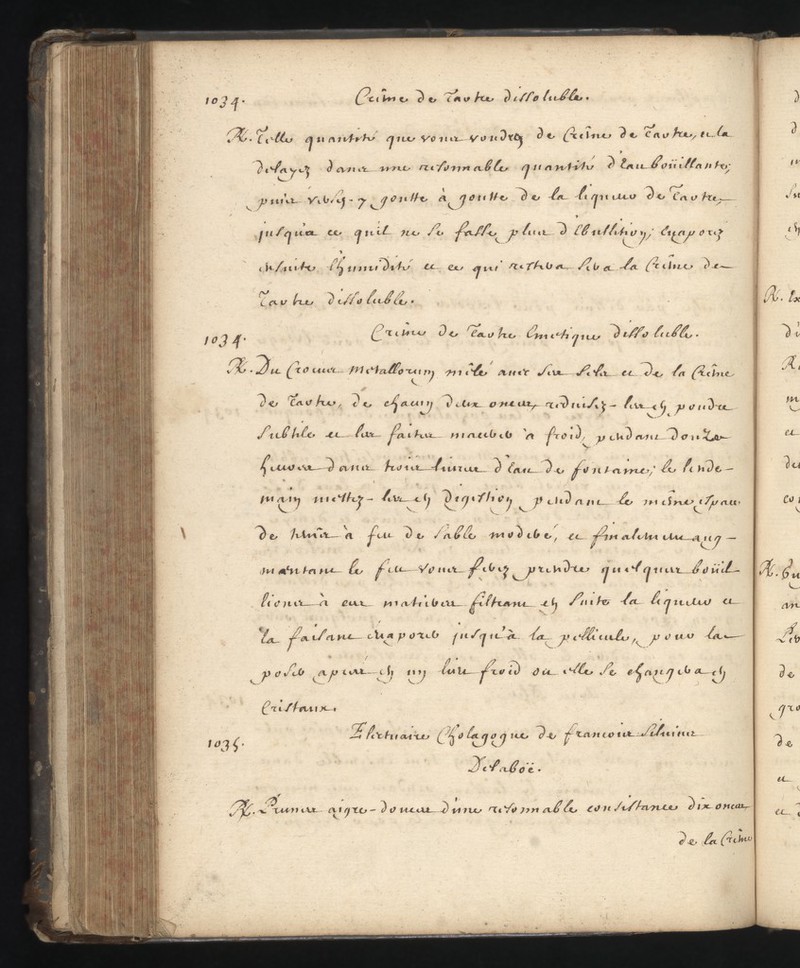 1034. Crême de Tartre dissoluble.
℞. Telle quantité que vous voudréz de Crême de Tartre, et la
delayez dans une resonnable quantité d'Eau boüillante;
puis versez-y goutte à goutte de la liqueur de Tartre,
jusqu'a ce qu'il ne se fasse plus d'Ebullition; Evaporez
ensuite l'humidité et ce qui restera sera la Crême de
Tartre dissoluble.
1034. Crême de Tartre Emetique dissoluble.
℞. Du Crocus metallorum mêlé avec ses sels et de la Crême
de Tartre, de chacun deux onces, reduisez-les en poudre
subtile et les faites macerer à froid, pendant douze
heures dans trois livres d'eau de fontaine; le lende-
main mettez-les en digestion pendant le même espace
de tems à feu de sable moderé, et finalement aug-
mentant le feu vous ferez prendre quelques boüil-
lions à ces matieres filtrant en suite la liqueur et
la faisant évaporer jusqu'à la pellicule, pour la
poser apres en un lieu froid ou elle se changera en
Cristaux.
1035. Electuaire Cholagogue de francois Silvius
Delaböe.
℞. Prunes aigre-douces d'une resonnable consistance dix onces
de la Crême